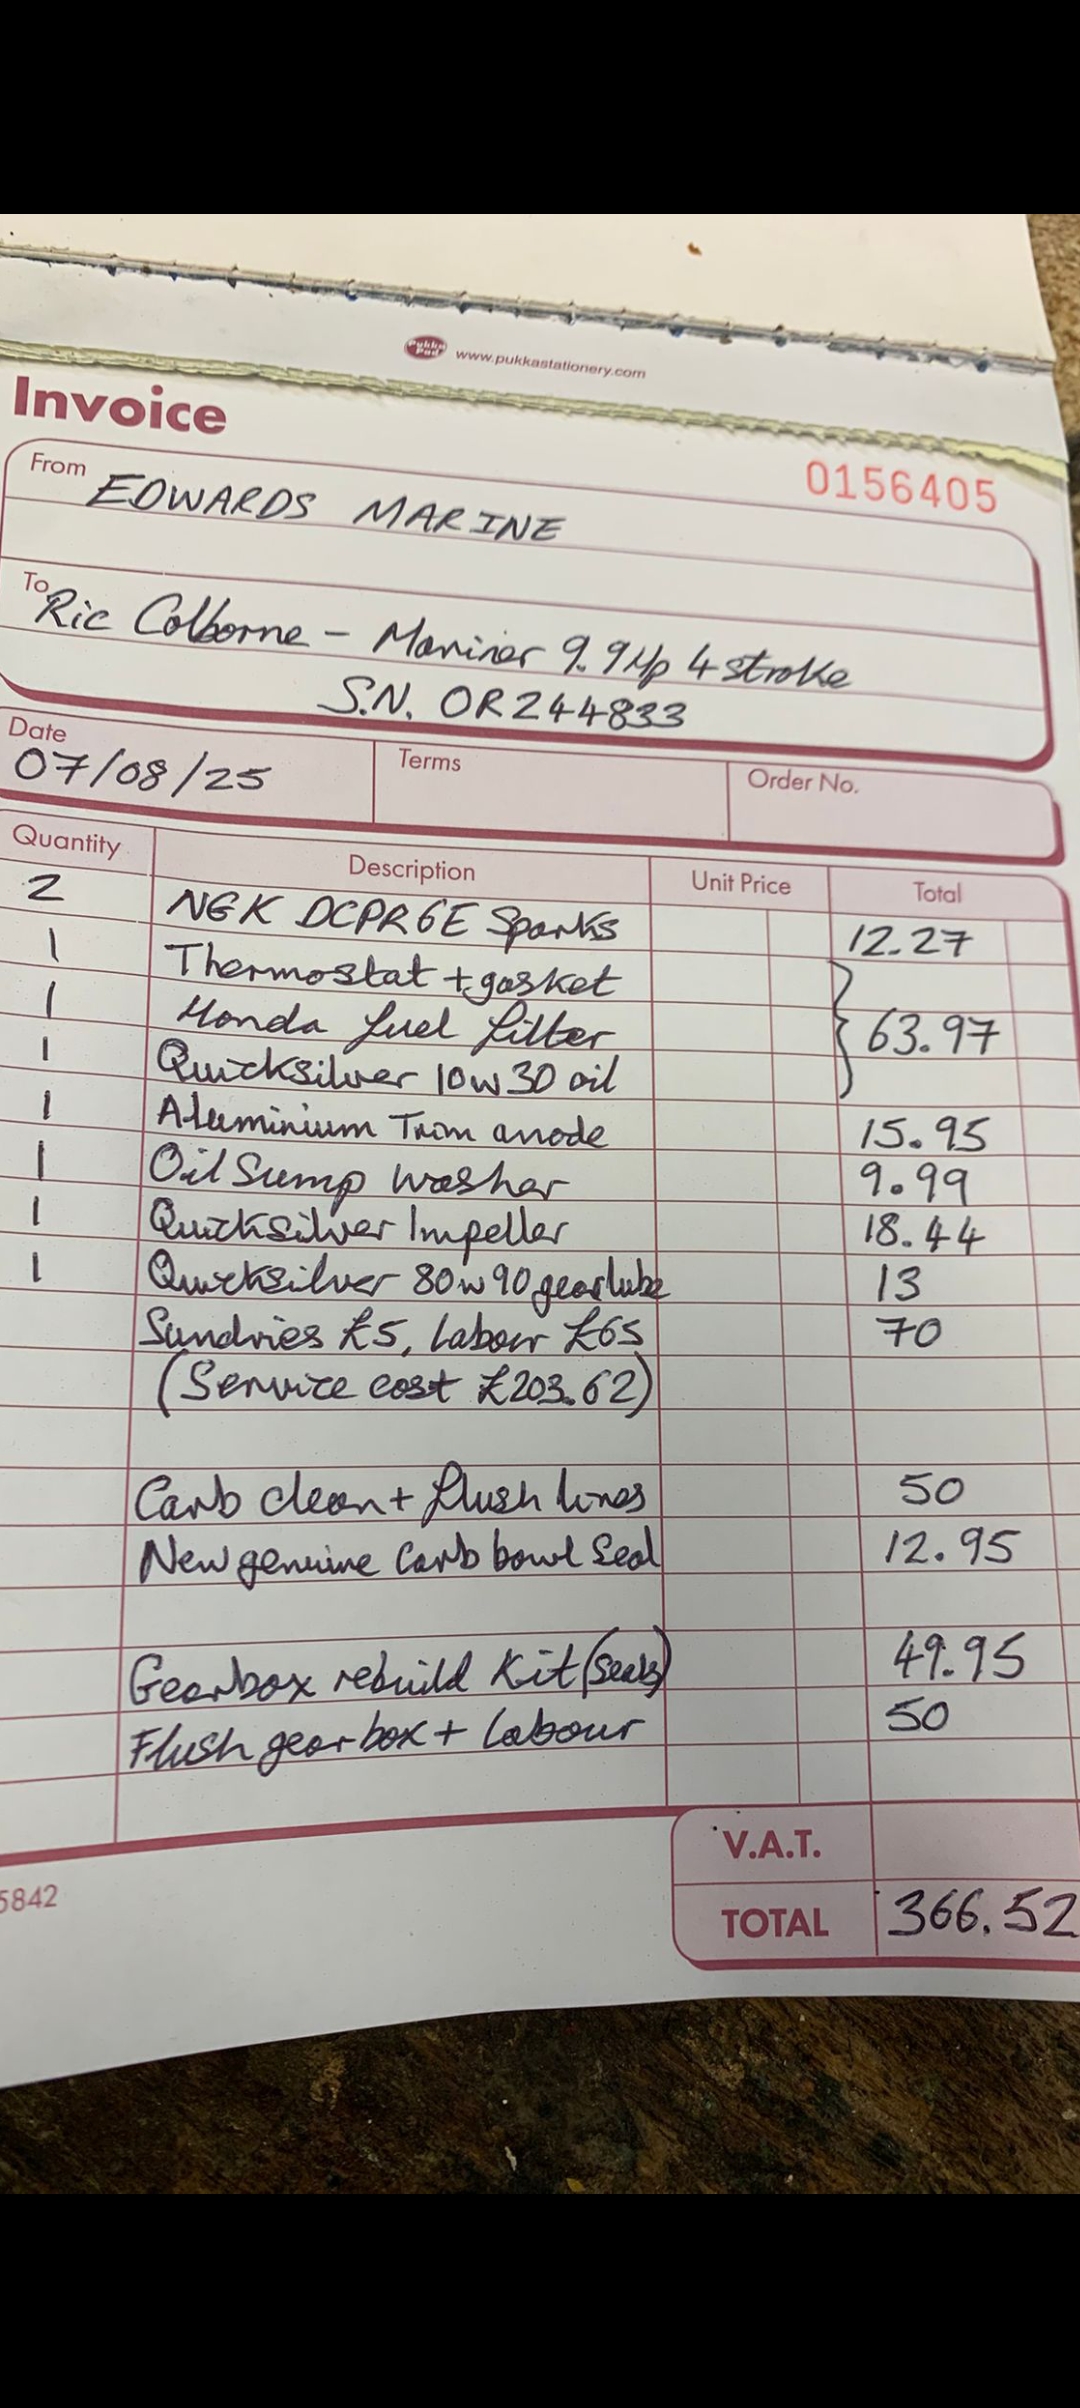 Pukka Pad www.pukkastationery.com
Invoice
0156405
From EDWARDS MARINE
To Ric Colborne - Mariner 9.9Hp 4 stroke
S.N. OR244833
Date Terms Order No.
07/08/25
Quantity Description Unit Price Total
2 NGK DCPR6E Sparks 12.27
1 Thermostat + gasket
1 Honda fuel filter 63.97
1 Quicksilver 10w30 oil
1 Aluminium Trim anode 15.95
1 Oil Sump washer 9.99
1 Quicksilver Impeller 18.44
1 Quicksilver 80w90 gearlube 13
Sundries £5, Labour £65 70
(Service cost £203.62)
Carb clean + flush lines 50
New genuine Carb bowl Seal 12.95
Gearbox rebuild Kit (seals) 49.95
Flush gearbox + Labour 50
V.A.T.
5842
TOTAL 366.52